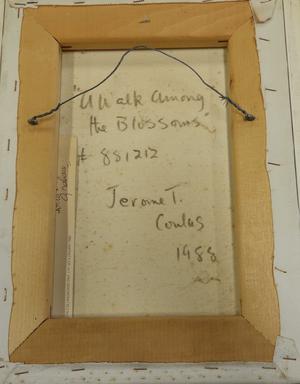 "A Walk Among
the Blossoms"
# 881212
Jerome T.
Conlas
1988